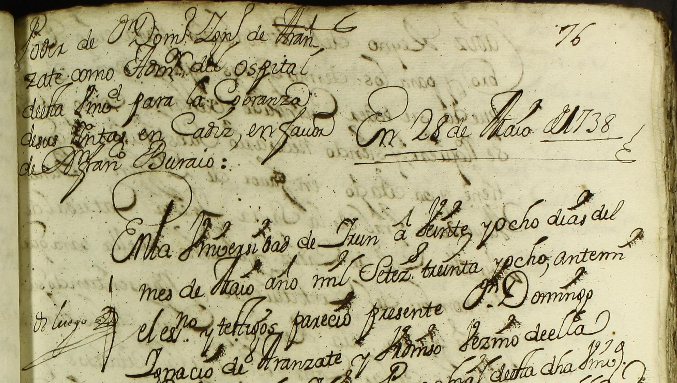 76
Poder de Dn Domo Ignº de Aran
zate como Admor del ospital
desta Univd para la Cobranza
desus Rentas en Cadiz en favor
de Dn Franº Buraio:
En 28 de Maio de 1738
Enla Universidad de Irun â Veinte, y ocho dias del
mes de Maio año mil Setezs treinta y ocho, antemi
el esno y testigos parecio presente Dn Domingo
di luego
Ignacio de Aranzate y Alonso Vezino deella
desta dha